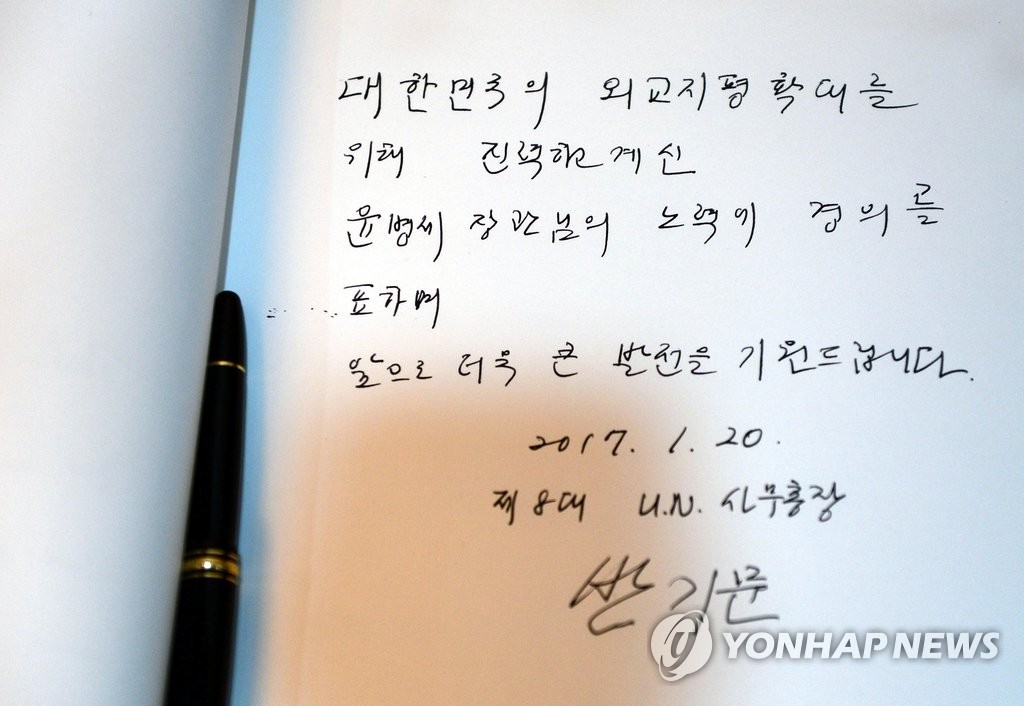 대한민국의 외교지평 확대를
위해 진력하고 계신
윤병세 장관님의 노력에 경의를
표하며
앞으로 더욱 큰 발전을 기원드립니다.
2017. 1. 20.
제 8대 U.N. 사무총장
반기문
YONHAP NEWS